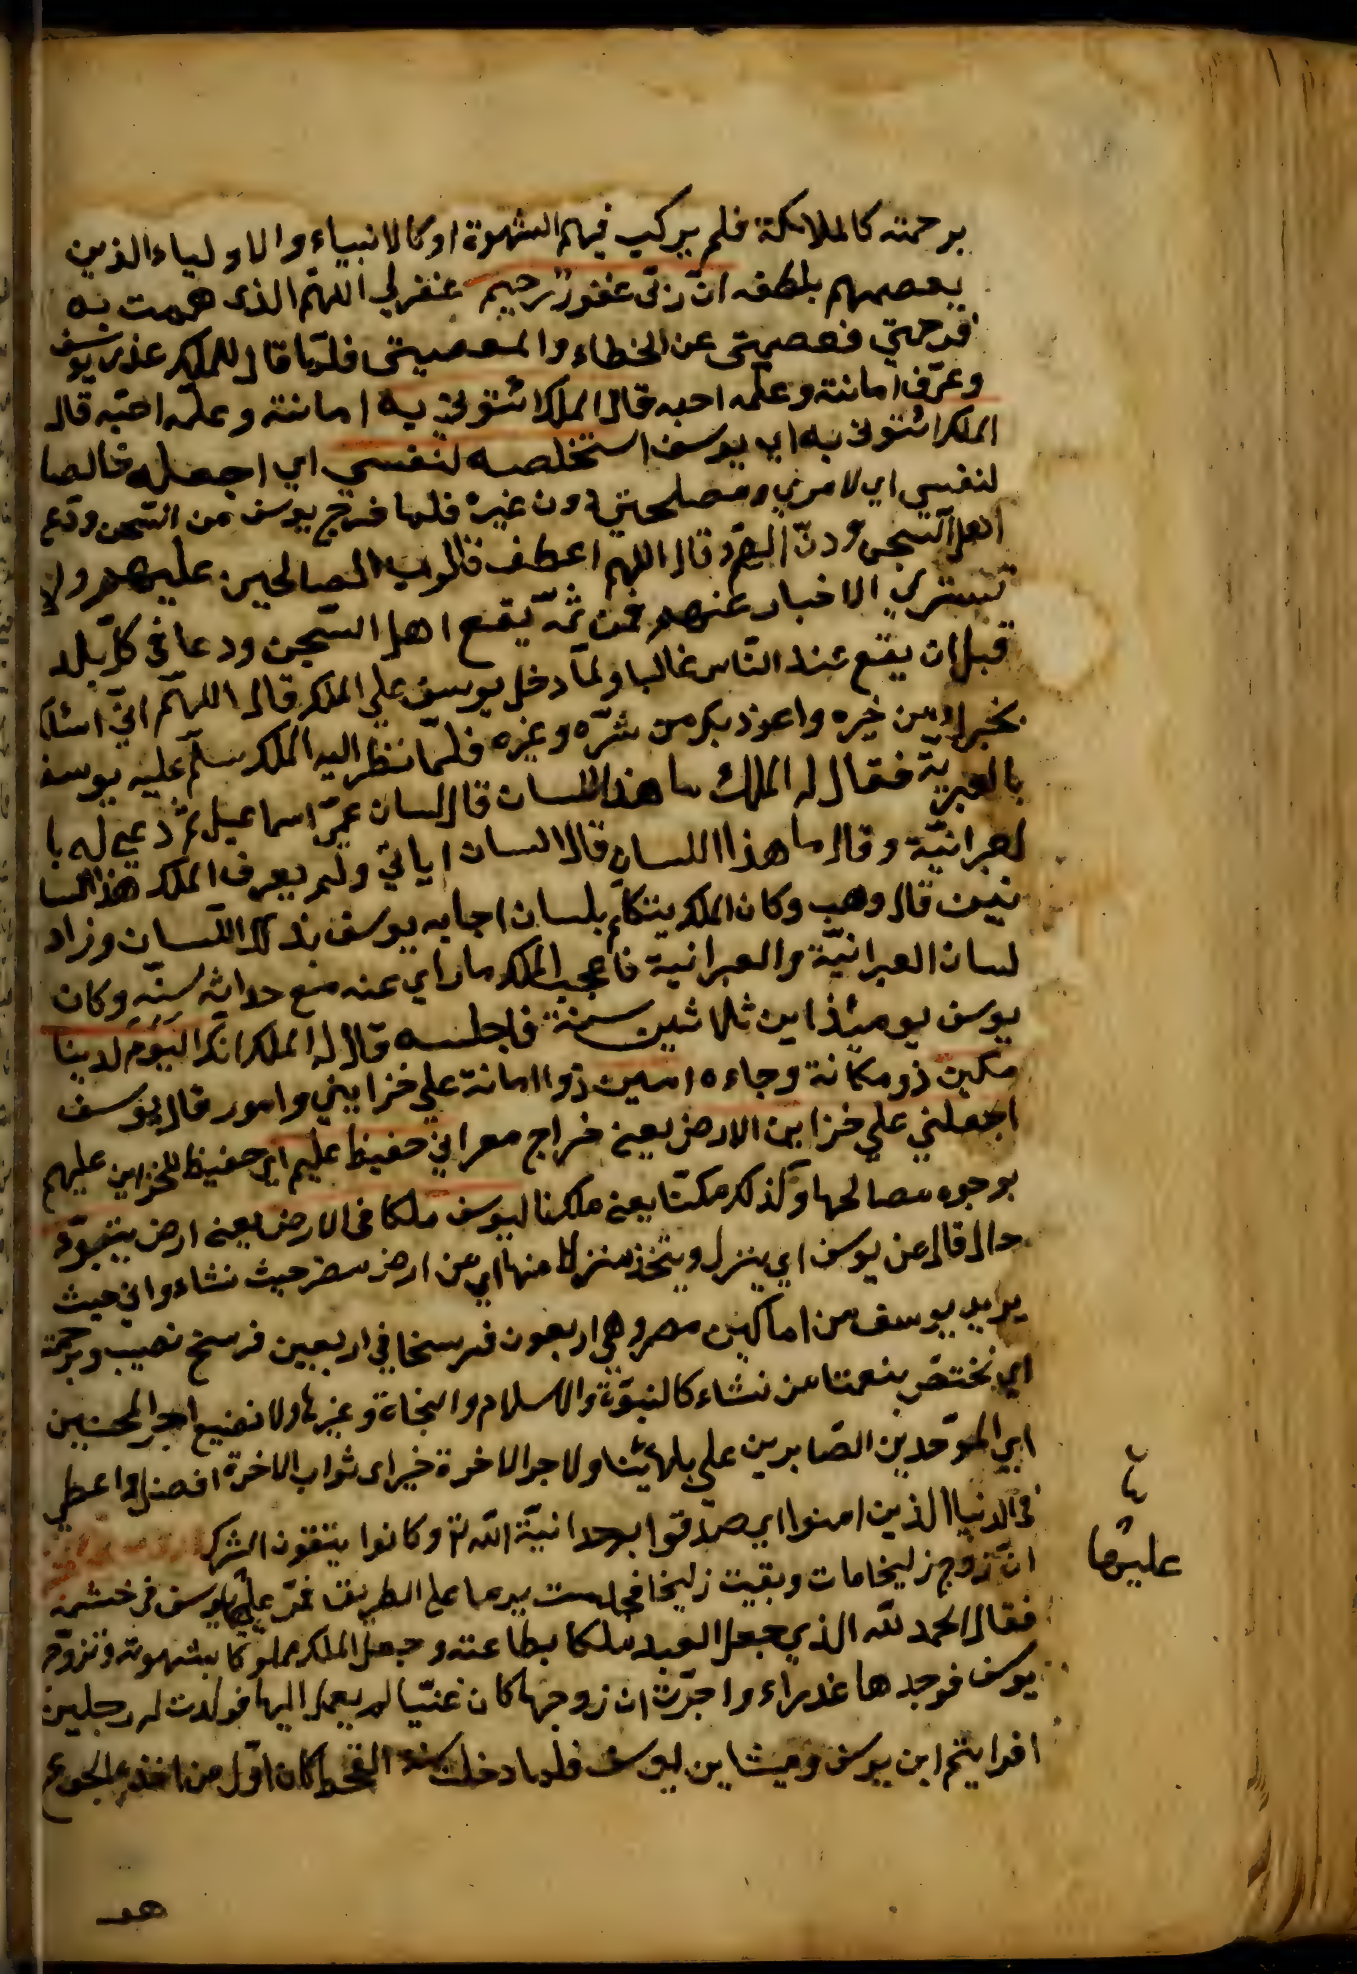 برحمته كالملائكة فلم يركب فيهم الشهوة او كالانبياء والاولياء الذين
يعصمهم بلطفه ان ربّى غفور رحيم غفرلي اللهمّ الذى هممت به
فرحمني فعصمتى عن الخطاء والمعصيتى فلمّا قال للملك عذر يوسف
وعرّف امانته وعلّمه احبه قال الملك ائتونى به امانته وعلّمه احبّه قال
الملك ائتونى به اى يوسف استخلصه لنفسي اي اجعله خالصا
لنفسي اي لامري ومصلحتى دون غيره فلما خرج يوسف من السّجن ودّع
اهل السّجن وقال اللهم اعطف قلوب الصالحين عليهم ولا
تستر الاخبار عنهم فمن ثمّ يقع اهل السّجن ودعا في كلّ بلد
قبل ان يقع عند النّاس غالبا ولمّا دخل يوسف علي الملك قال اللهمّ انّي اسئلك
بخيرك من خيره واعوذ بك من شرّه وغيره فلمّا نظر اليه الملك سلّم عليه يوسف
بالعبرية فقال له الملك ما هذا اللسان قال لسان عمّى اسماعيل ثمّ دعي له با
لعبرانيّة وقال ما هذا اللسان قال لسان ابائي ولم يعرف الملك هذا اللسا
نين قال وهب وكان الملك يتكلّم بلسان اجابه يوسف بذلك اللّسان وزاد
لسان العبرانيّة والعبرانية فاعجب الملك ما راي عنه مع حداثه سنّه وكان
يوسف يومئذ ابن ثلاثين سنة فاجلسه قال له الملك انك اليوم لدينا
مكين ذو مكانة وجاءه امين ذو امانة علي خزايني وامور قال يوسف
اجعلني علي خزاين الارض يعنى خراج مصر اني حفيظ عليم اي حفيظ للخزاين عليهم
بوجوه مصالحها وكذلك مكنّا يعنى ملكنا ليوسف ملكا فى الارض يعنى ارض يتبوّء
حال قال عن يوسف اي ينزل ويتّخذ منزلا منها اي من ارض مصر حيث نشاء واني حيث
يريد يوسف من اماكن مصر وهي اربعون فرسخا في اربعين فرسخ نصيب وبرحمة
اي نختصّ بنعمتنا من نشاء كالنبوّة والاسلام والنجاة وغيرها ولا نضيع اجر المحسنين
اي الموّحدين الصّابرين علي بلائنا ولاجر الاخرة خير اى ثواب الاخرة افضل واعطي
فى الدنيا الذين امنوا اي صدقوا بوحدانيّة الله تع وكانوا يتقون الشرك
انّ زوج زليخا مات وبقيت زليخا فجلست يوما على الطريق فمرّ عليها يوسف فى حشمه
فقال الحمد لله الذي جعل العبد ملكا بطاعته وجعل الملك مملوكا بشهوته وتزوّج
يوسف فوجدها عذراء واخبرت ان زوجها كان عنّينا لم يصل اليها فولدت له رجلين
افرايتم ابن يوسف وميشا بن ليوسف فلما دخلت سنة القحط كان اوّل من اخذه الجوع
عليها
هو